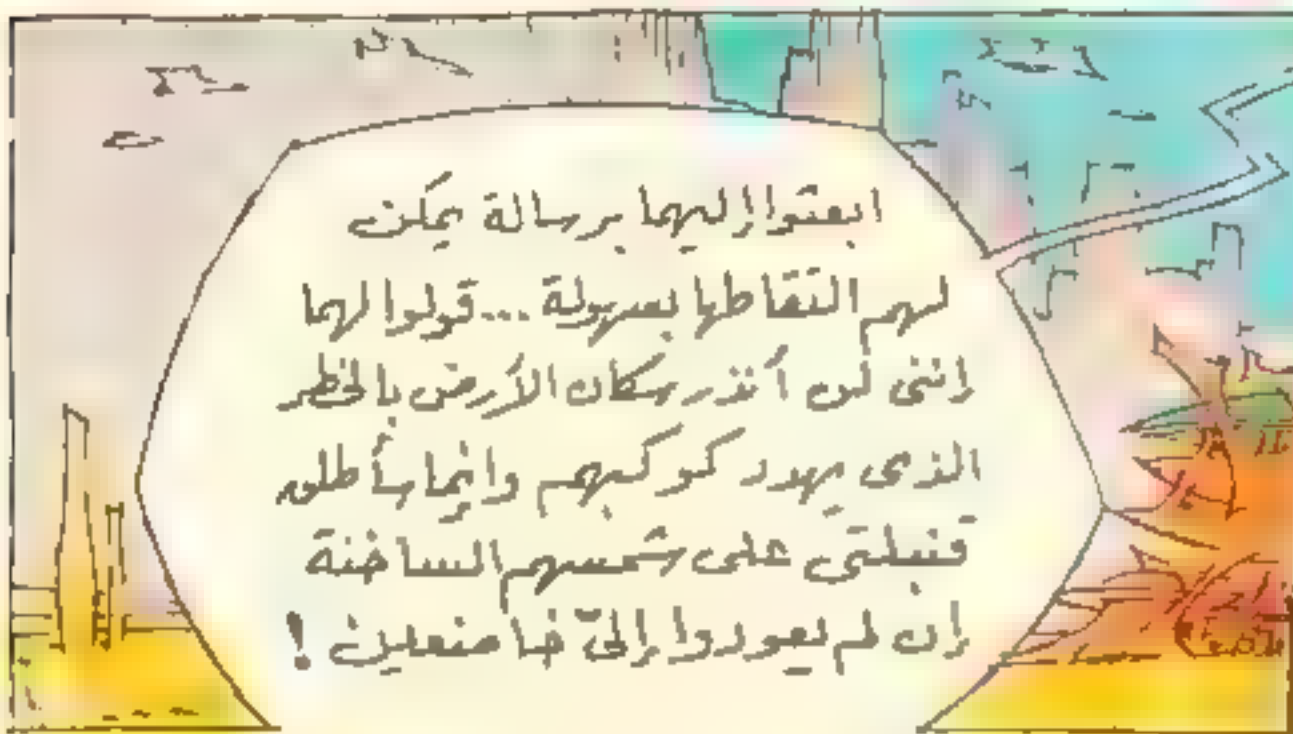 ابعثوا إليهما برسالة يمكن
لهم التقاطها بسهولة ... قولوا لهما
إننى لن أنذر سكان الأرض بالخطر
الذى يهدد كوكبهم وإنما سأطلق
قنبلتى على شمسهم الساخنة
إن لم يعودوا إلىّ خاضعين !